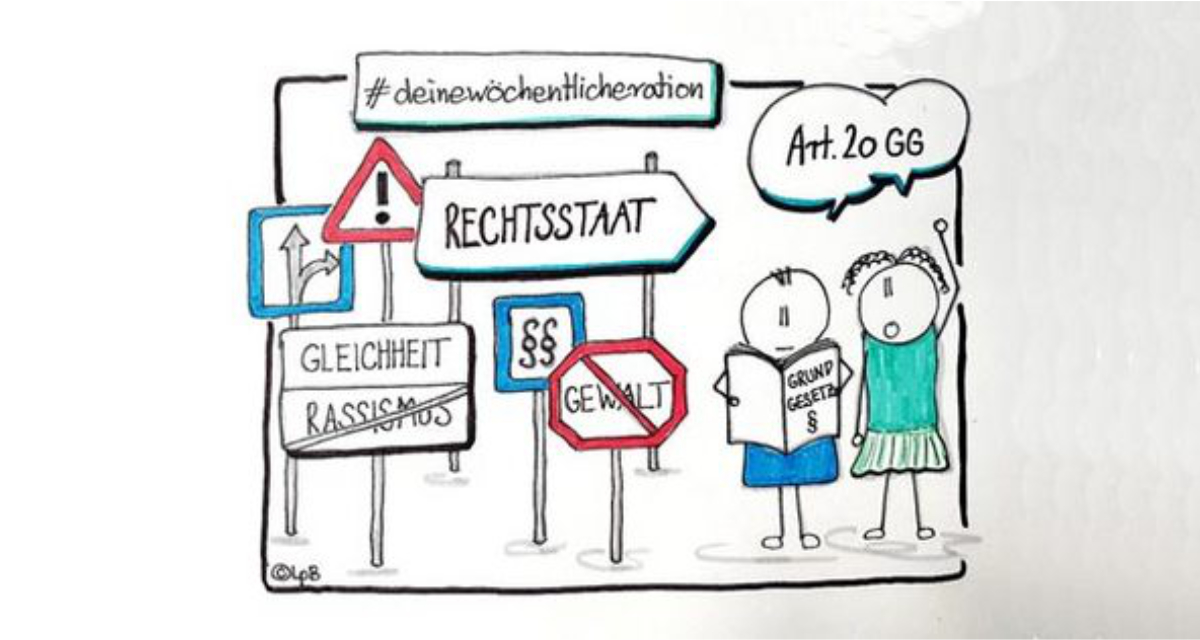 #deinewöchentlicheration
Art. 20 GG
!
RECHTSSTAAT
GLEICHHEIT
RASSISMUS
§§
§§
GEWALT
GRUND
GESETZ
§
©LpB